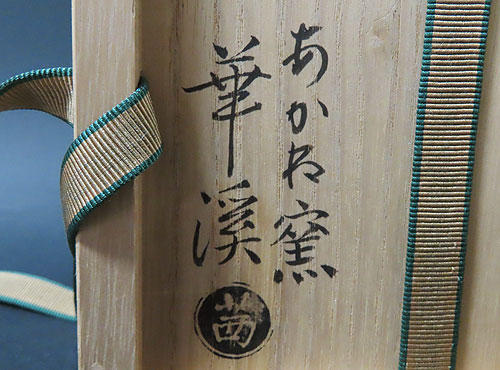 あかね窯
華渓
茜